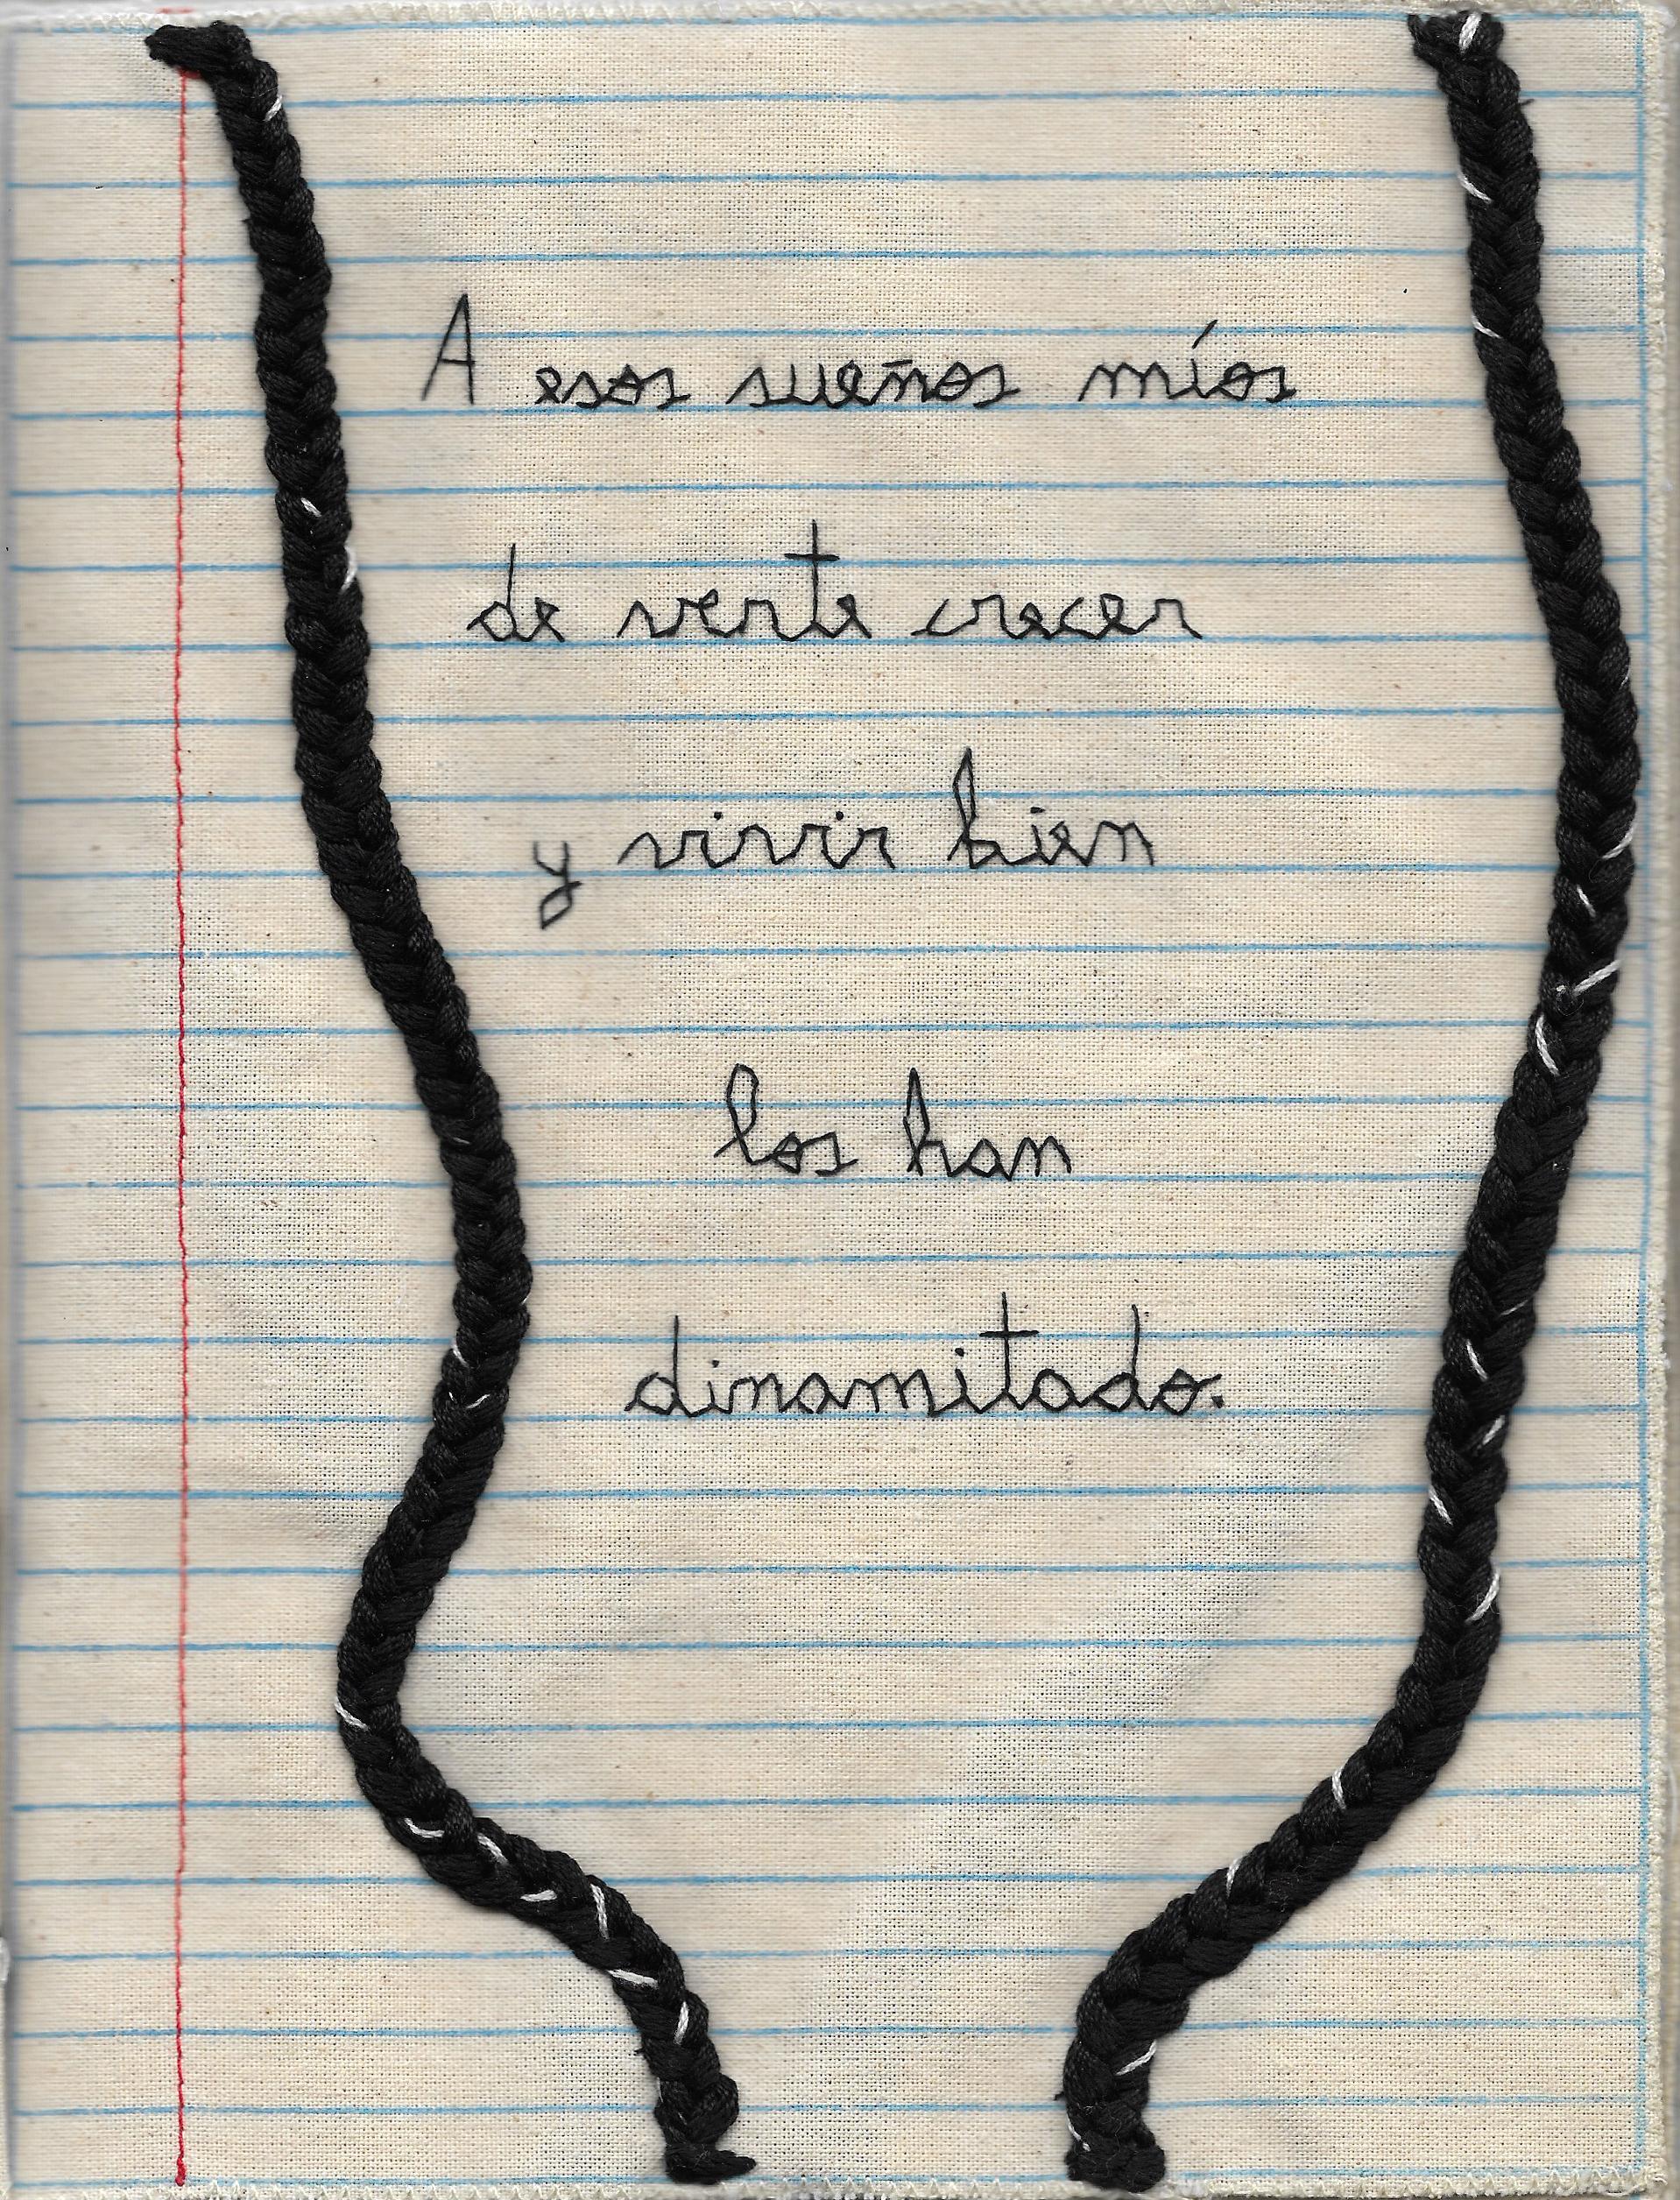 A esos sueños míos
de verte crecer
y vivir bien
los han
dinamitado.